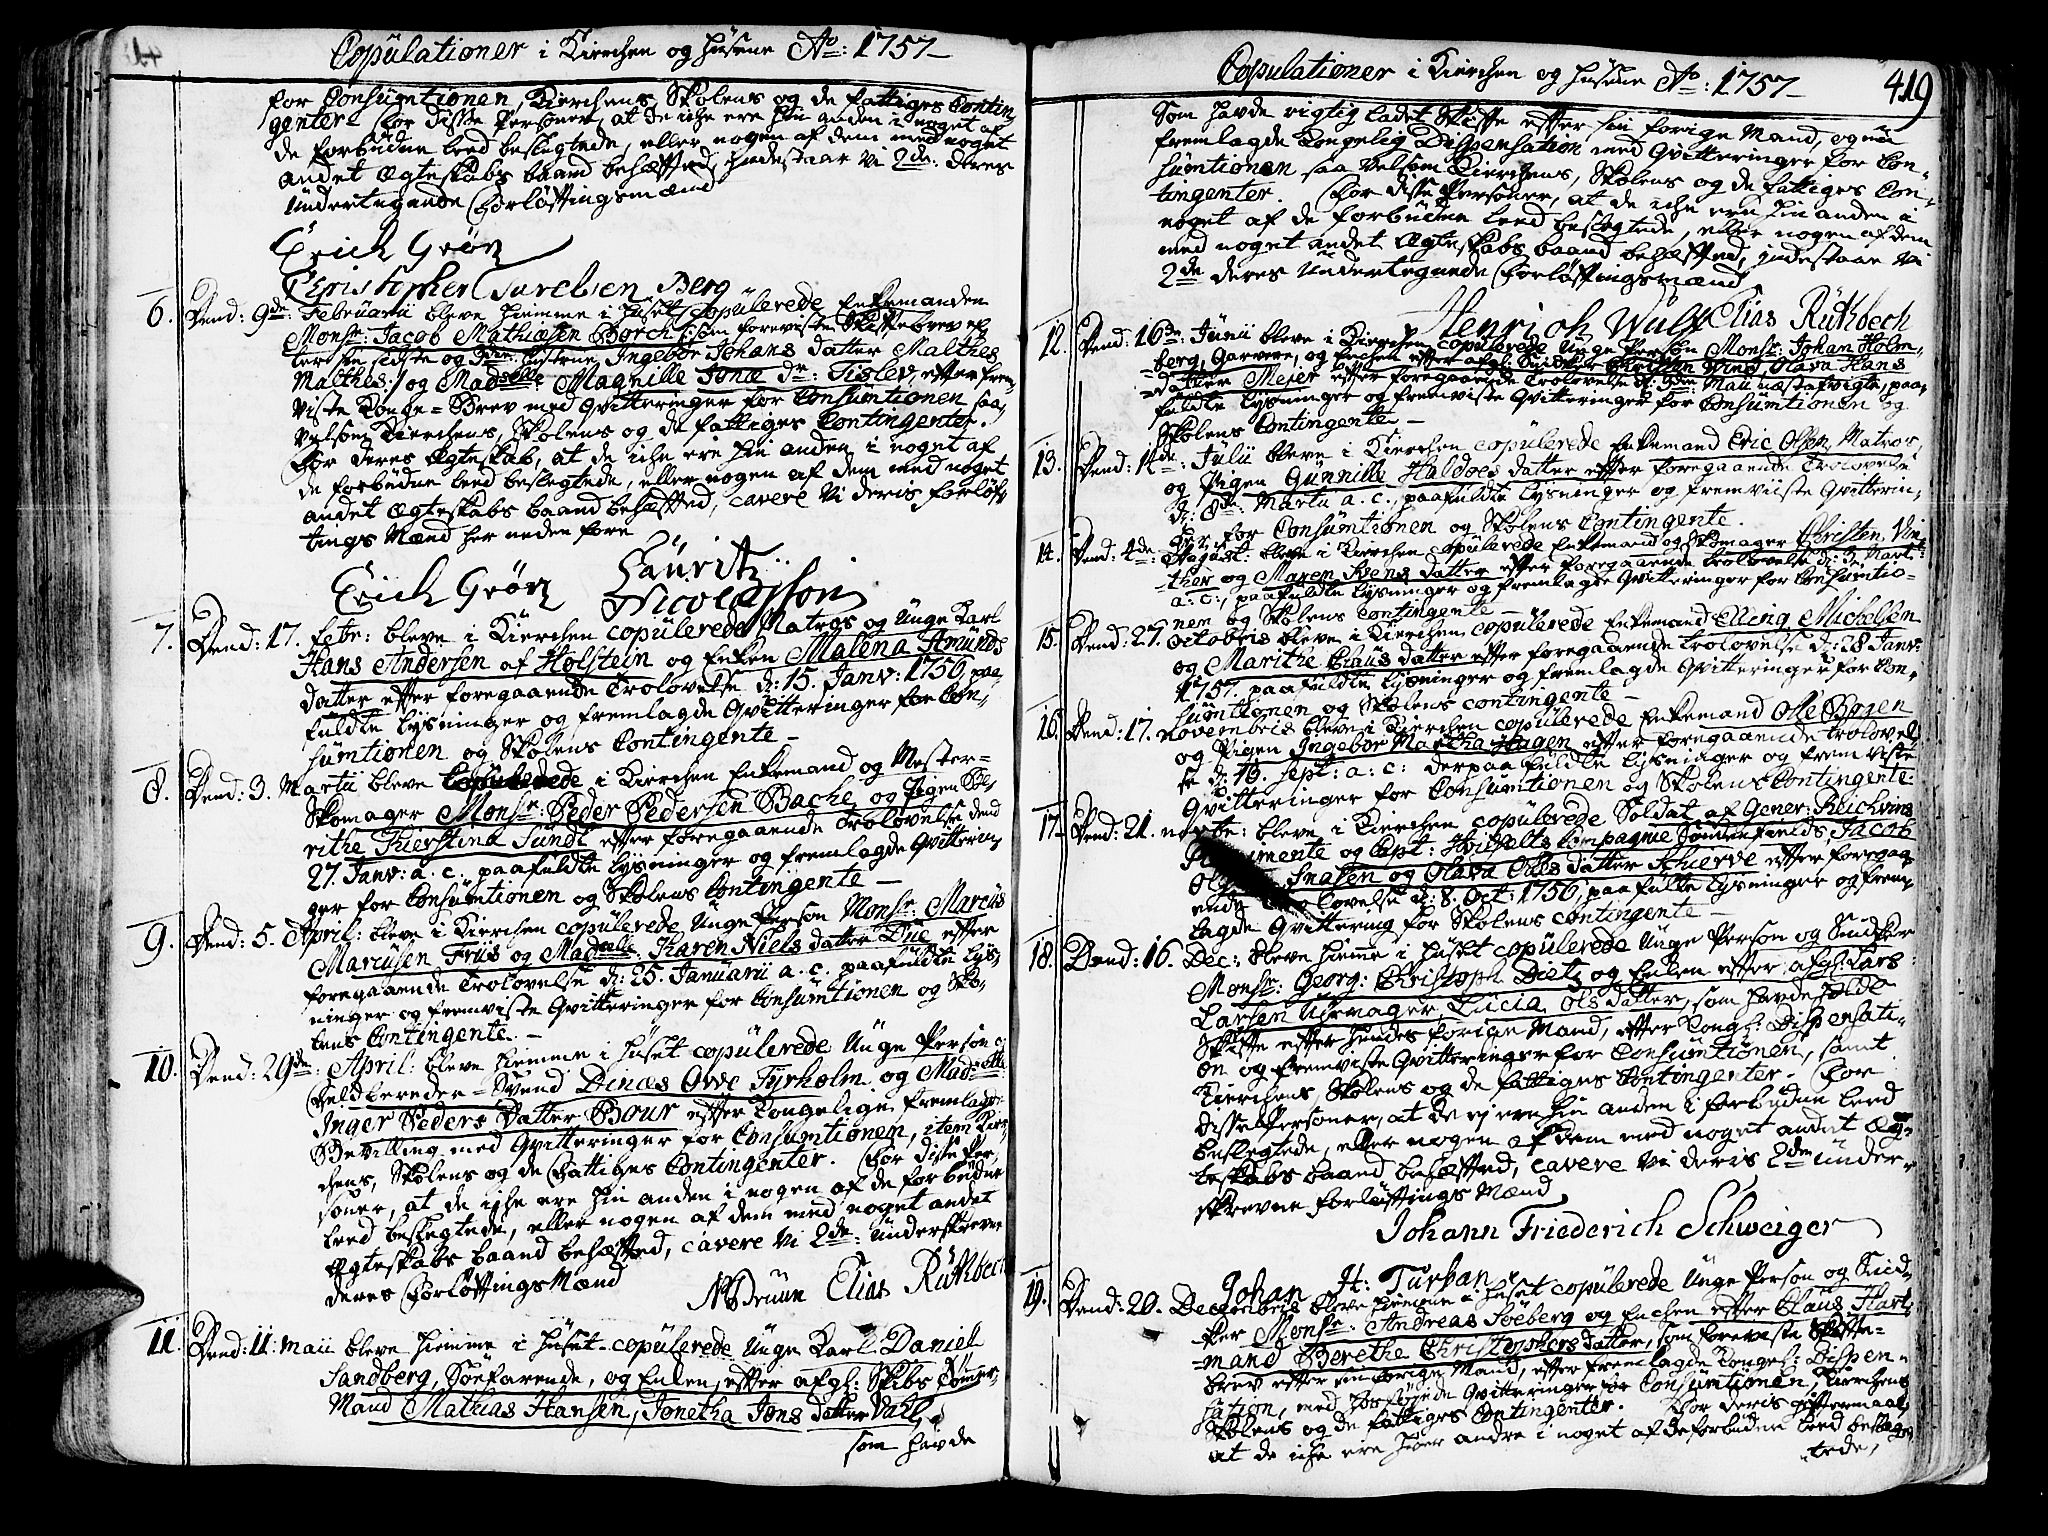 Copulationer i Kierchen og Husene Ao: 1757
for Consumtionen, Kierchens, Skolens og de fattiges Contin,
genter. For disse Personer, at de iche ere hin anden i noget af
de forbudne leed beslegtede, eller nogen af dem med noget
andet Ægteskabs baand behæfted, indestaar Vi 2de: Deres
Undertegnede Forløftingsmænd
Erich Grøn
Christopher Surelsen Berg
6. Dend: 9de: Februarii bleve hiemme i huset Copulerede Enkemanden
Monsr: Jacob Mathiæsen Borch /:som foreviste Skiftebrev ef,
ter sin sidste og 3die hustrue, Ingebor Johans datter Malthes
Malthes:/ og Madselle Magnille Jonæ dr: Tislev, efter frem,
viste Konge-Brev med Qvitteringer for Consumtionen saa,
velsom Kierchens, Skolens og de fattiges Contingenter.
For deres Ægteskab, at de iche ere hin anden i noget af
de forbudne leed beslegtede, eller nogen af dem med noget
andet Ægteskabs baand behæfted, cavere Vi deris forløf,
tings Mænd her neden fore
Erich Grøn Lauritz
Nicolasson
7. Dend: 17. Febr: bleve i Kierchen copulerede Matros og Unge Karl
Hans Andersen af Holstein og Enken Malena Amunds
datter efter foregaaende Trolovelse d: 15. Janv: 1756, paa
fuldte lysninger og fremlagde Qvitteringer for Con,
sumtionen og Skolens Contingente
8. Dend: 3. Martii bleve Copulerede i Kierchen Enkemand og Mester-
Skomager Monsr: Peder Pedersen Bache og Pigen Be,
rithe Kierstina Sundt efter foregaaende Trolovelse dend
27. Janv: a. c. paafuldte lysninger og fremlagde Qvitterin,
ger for Consumtionen og Skolens Contingente
9. Dend: 5. April: bleve i Kierchen copulerede Unge Person Monsr: Marcus
Marcusen Friis og Madselle: Karen Niels datter Due efter
foregaaende Trolovelse d: 25. Januarii a. c. paafuldte lys,
ninger og fremviste Qvitteringer for Consumtionen og Sko,
lens Contingente.
10. Dend: 29de: April: bleve hiemme i huset copulerede Unge Person og
Feldbereder-Svend Dines Ove Tyrholm og Madselle
Inger Peders Datter Bour efter Kongelige fremlagde
Bevilling med Qvitteringer for Consumtionen, item Kier,
chens, Skolens og de Fattiges Contingenter. For disse Per,
soner, at de iche ere hin anden i nogen af de forbudne
leed beslegtede, eller nogen af dem med noget andet
Ægteskabs baand behæfted, cavere Vi 2de: Underskrevne
deres Forløftings Mænd
Elias Rutkbech
11. Dend: 11. Maii bleve hiemme i huset copulerede Unge Karl Daniel
Sandberg, Søefarende, og Enken efter afgl: Skibs Tømer,
Mand Mathias Hansen, Jonetha Jons datter Vahl,
som havde
Copulationer i Kierchen og Husene Ao: 1757 419
Som havde rigtig ladet Skifte efter sin forige Mand, og nu
fremlagde Kongelig Dispensation med Qvitteringer for Con,
sumtionen saa velsom Kierchens, Skolens og de fattiges Con,
tingenter. For disse Personer, at de iche ere hin anden i
noget af de forbudne leed beslegtede, eller nogen af dem
med noget andet Ægteskabs baand behæfted, indestaar Vi
2de deres Undertegnede Forløftingsmænd
Henrich Wulf Elias Rutkbech
12. Dend: 16de: Junii bleve i Kierchen copulerede Unge Person Monsr: Johan Holm,
berg, Garvere, og Enchen efter afgl: Snidker Christen Wind, Olava Hans
datter Mejer efter foregaaende Trolovelse d: 3die Maii næstafvigte, paa,
fuldte lysninger og fremviste Qvitteringer for Consumtionen og
Skolens Contingente
13. Dend: 12de: Julii bleve i Kierchen copulerede Enkemand Eric Olsen, Matros,
og Pigen Gunnille Haldoes datter efter foregaaende Trolovelse
d: 8de: Martii a. c., paafuldte lysninger og fremviiste Qvitterin,
ger for Consumtionen og Skolens Contingente.
14. Dend: 4de: August: bleve i Kierchen copulerede Enkemand og Skomager Christen Vin,
ther og Maren Svens datter efter foregaaende Trolovelse d: 3. Mart:
a: c:, paafuldte lysninger og fremlagde Qvitteringer for Consumtio-
nen og Skolens Contingente
15. Dend: 27. Octobris bleve i Kierchen copulerede Enkemand Elling Michelsen
og Marithe Claus datter efter foregaaende Trolovelse d: 28 Janv:
1757. paafuldte lysninger og fremlagde Qvitteringer for Con,
sumtionen og Skolens contingente
16. Dend: 17. Novembris bleve i Kierchen copulerede Enkemand Olle Bogen
og Pigen Ingebor Martha Hagen efter foregaaende trolovel,
se d: 13. Sept: a: c: derpaa fuldte lysninger og fremviste
Qvitteringer for Consumtionen og Skolens Contingente.
17. Dend: 21. Novbr: bleve i Kierchen copulerede Soldat af Gener: Reichvins
Regimente og Capt: Houbelts Compagnie Søndenfields, Jacob
Snasen og Olava Oles datter Skierve efter foregaa,
ende Trolovelse d: 8. Oct: 1756, paafulte lysninger og frem,
lagde Qvittering for Skolens contingente
18. Dend: 16. Dec: bleve hieme i huset copulerede Unge Person og Snidker
Monsr: Georg: Christoph Dietz og Enken efter afgl: Lars
Larsen Uhrmager, Lucia Ols datter, som havde holdt
Skifte efter hendes forige Mand, efter Kongl: Dispensati-
on og fremviste Qvitteringer for Consumtionen, samt
Kierchens, Skolens og de fattiges Contingenter. For
disse Personer, at de ej ere hin anden i forbudne leed
beslegtede, eller nogen af dem med noget andet Æg-
teskabs baand behæfted, cavere Vi deris 2de under-
skrevne forløftings Mænd
Johann Friederich Schweiger
Johan H: Turban
19. Dend: 20. Decembris bleve hiemme i huset copulerede Unge Person og Snid-
ker Monsr: Andreas Soeberg og Enchen efter Claus Hart,
mand Berethe Christophers datter, som foreviste Skifte-
brev efter sin forige Mand, efter fremlagde Kongel: Dispen-
sation, med hosføyede Qvitteringer for Consumtionen, Kierchens
Skolens og de fattiges Contingenter. For deris giftermaal,
at de iche ere hver andre i noget af de forbudne leed besleg,
tede,